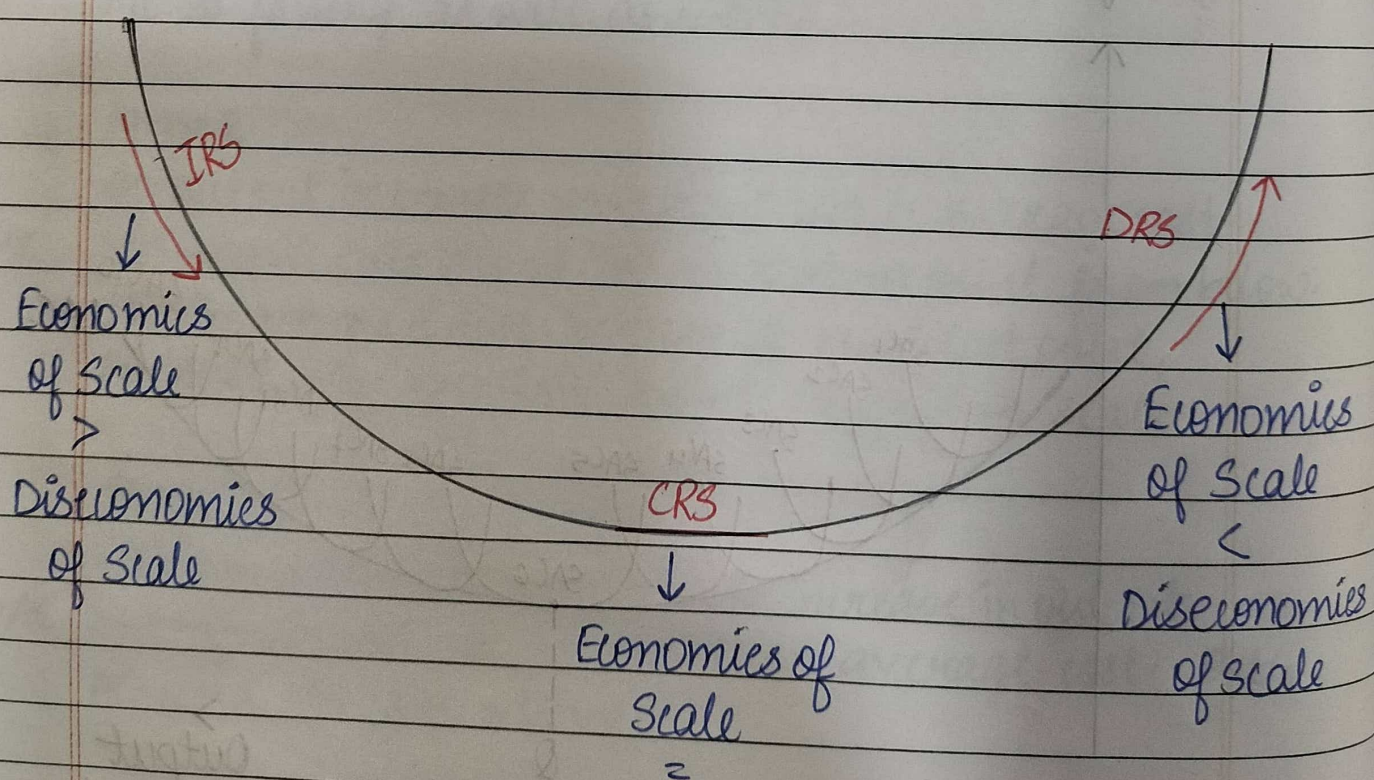 IRS
↓
Economics
of Scale
>
Diseconomies
of Scale
CRS
↓
Economies of
Scale
=
DRS
↓
Economics
of Scale
<
Diseconomies
of scale
Output